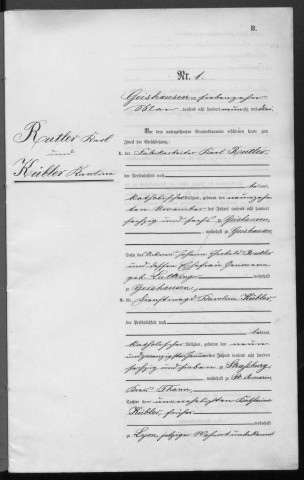 B.
Nr. 1.
Geishausen, am siebenzehn
Mai tausend acht hundert neunzig und drei.
Vor dem unterzeichneten Standesbeamten erschienen heute zum
Zweck der Eheschließung:
Rutler Karl
und
Kübler Karolina
1. der Fabrikarbeiter Karl Rutler,
der Persönlichkeit nach
bekannt,
katholischer Religion, geboren den neunzehn
ten November des Jahres tausend acht hundert
sechzig und sechs zu Geishausen,
wohnhaft zu Geishausen
Sohn des
und dessen Ehefrau
geb.
wohnhaft
zu Geishausen,
2. die Dienstmagd Karolina Kübler,
der Persönlichkeit nach
bekannt,
katholischer Religion, geboren den neun
undzwanzigsten des Jahres tausend acht hundert
sechzig und sieben zu Straßburg
wohnhaft zu St. Amarin
Kreis Thann,
Tochter der unverehelichten
Kübler, früher
wohnhaft
zu Lyon, jetziger Wohnort unbekannt